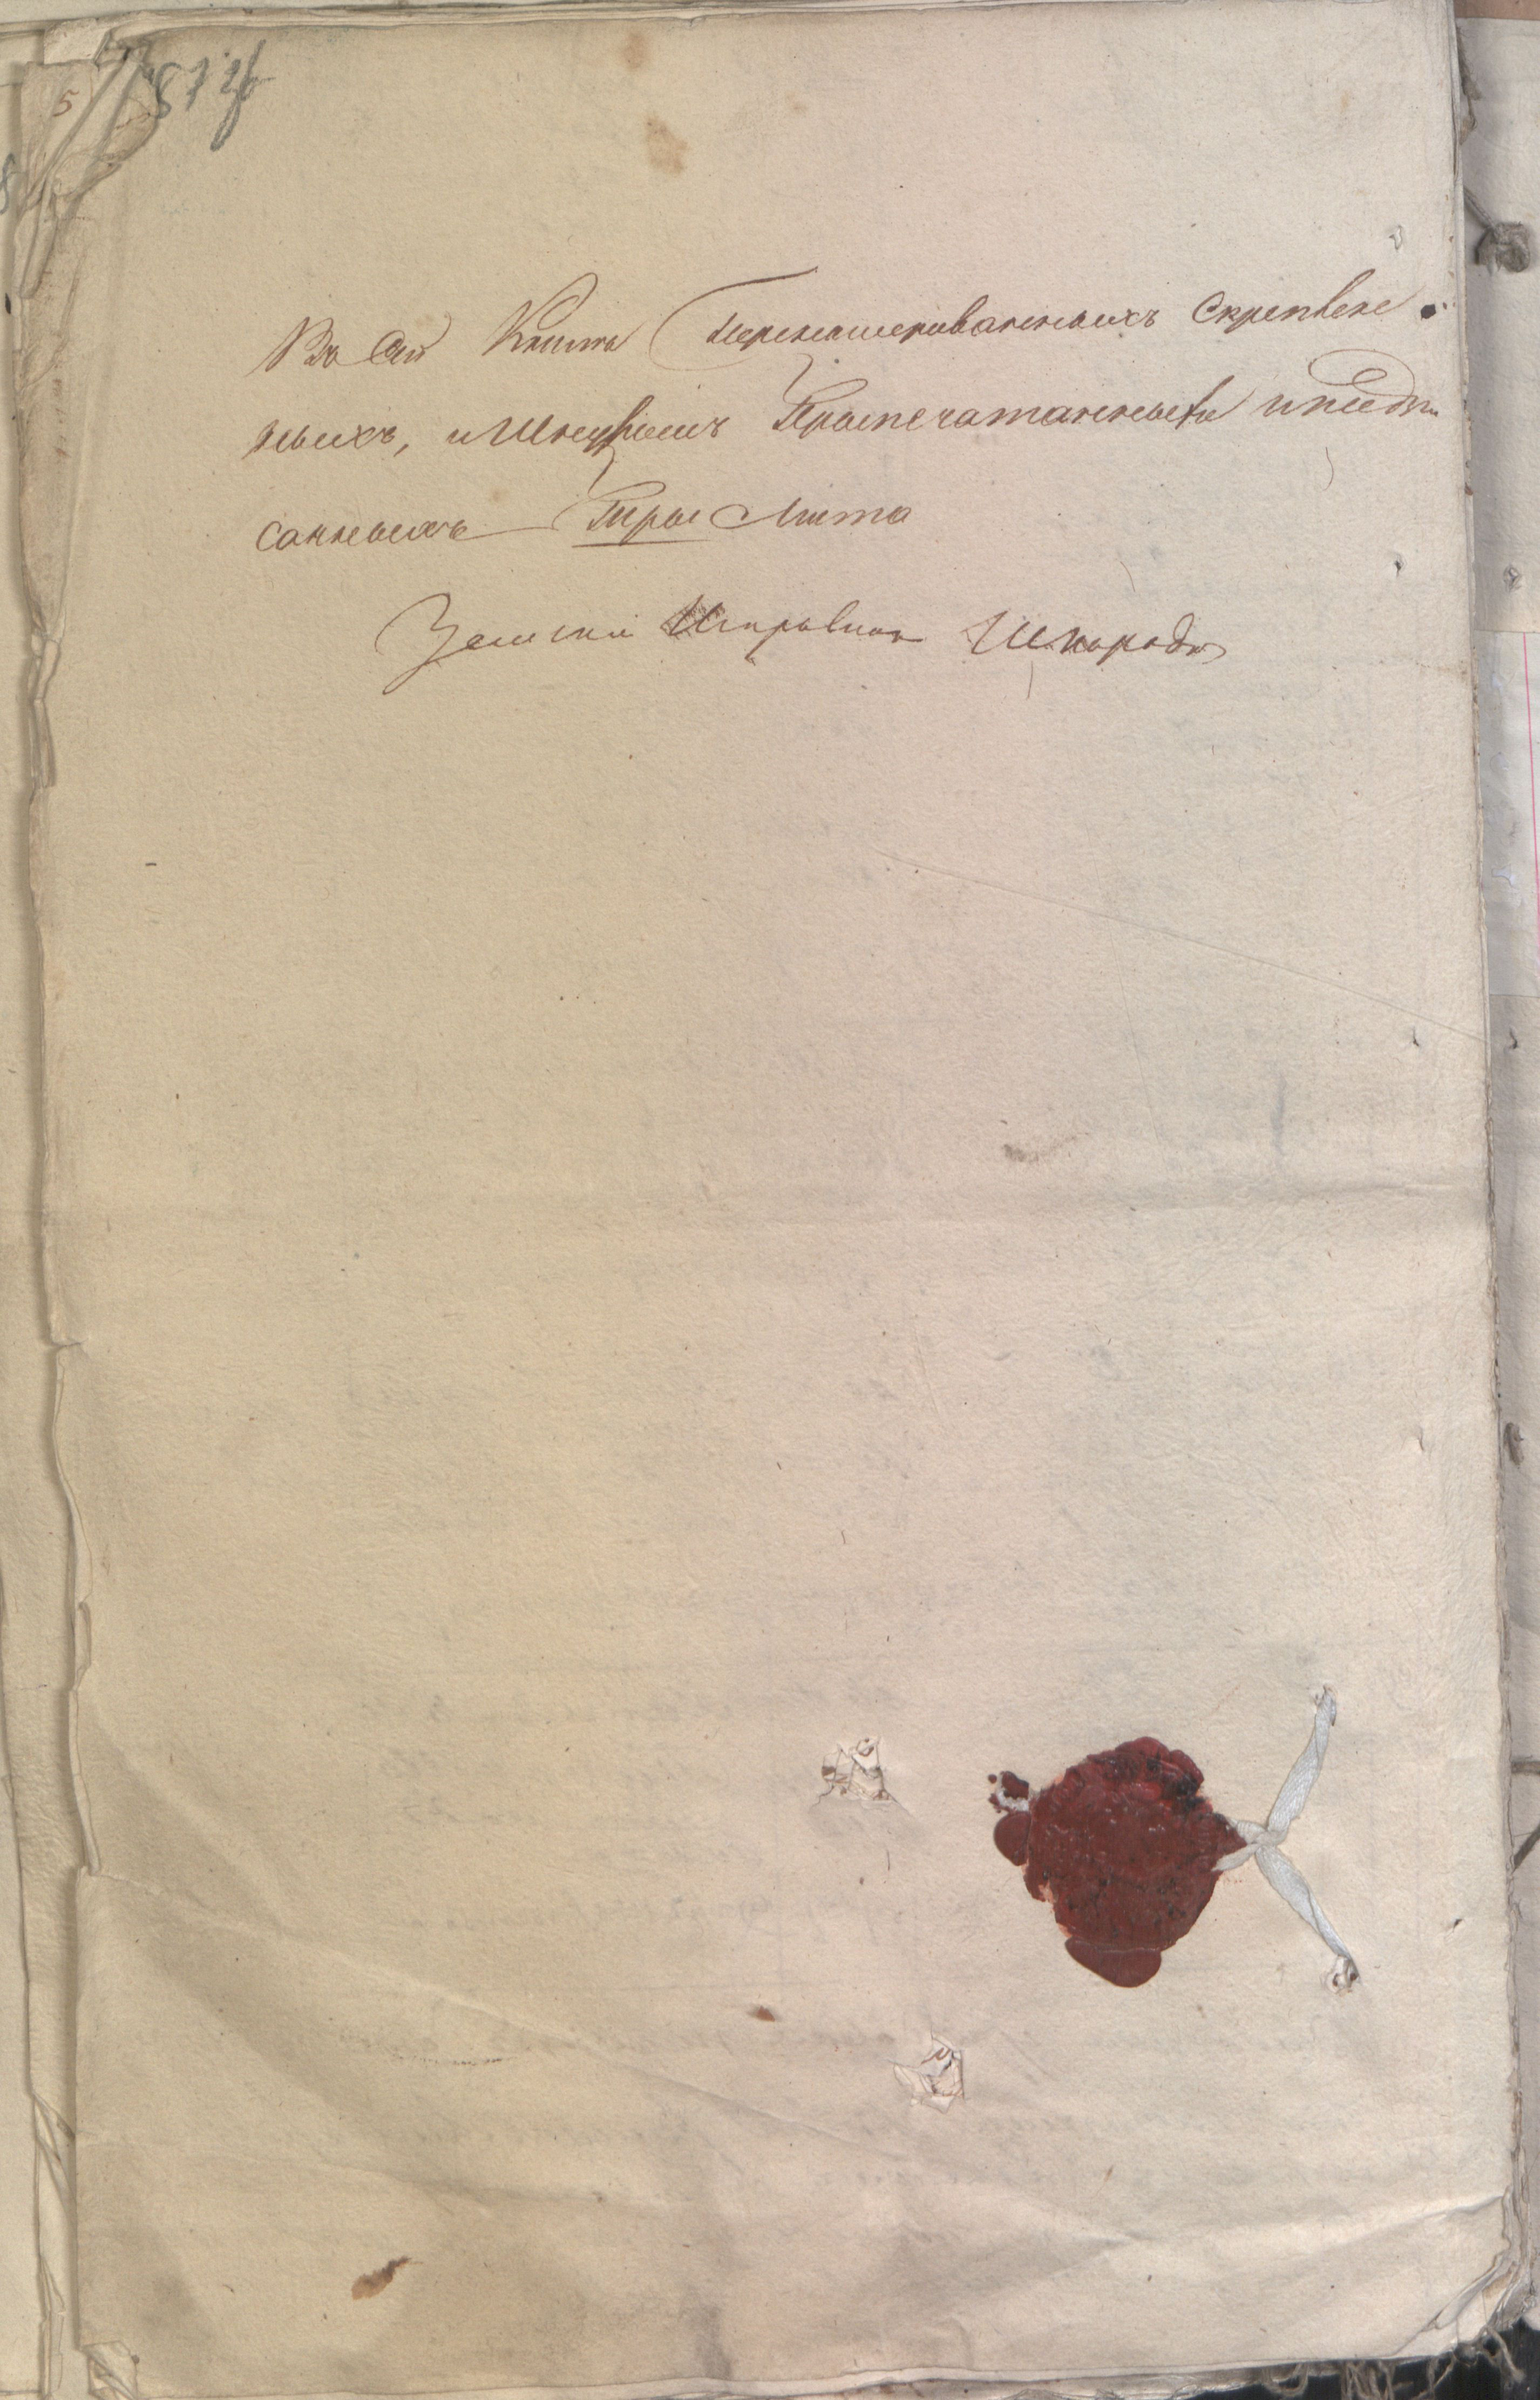 87 об
5
Въ сей Книги Перенумерованныхъ Скрепвлен
ныхъ, и Шнуромъ Припечатанныхъ и подпи
санныхъ Три Листа
Земский Исправник Шкорада